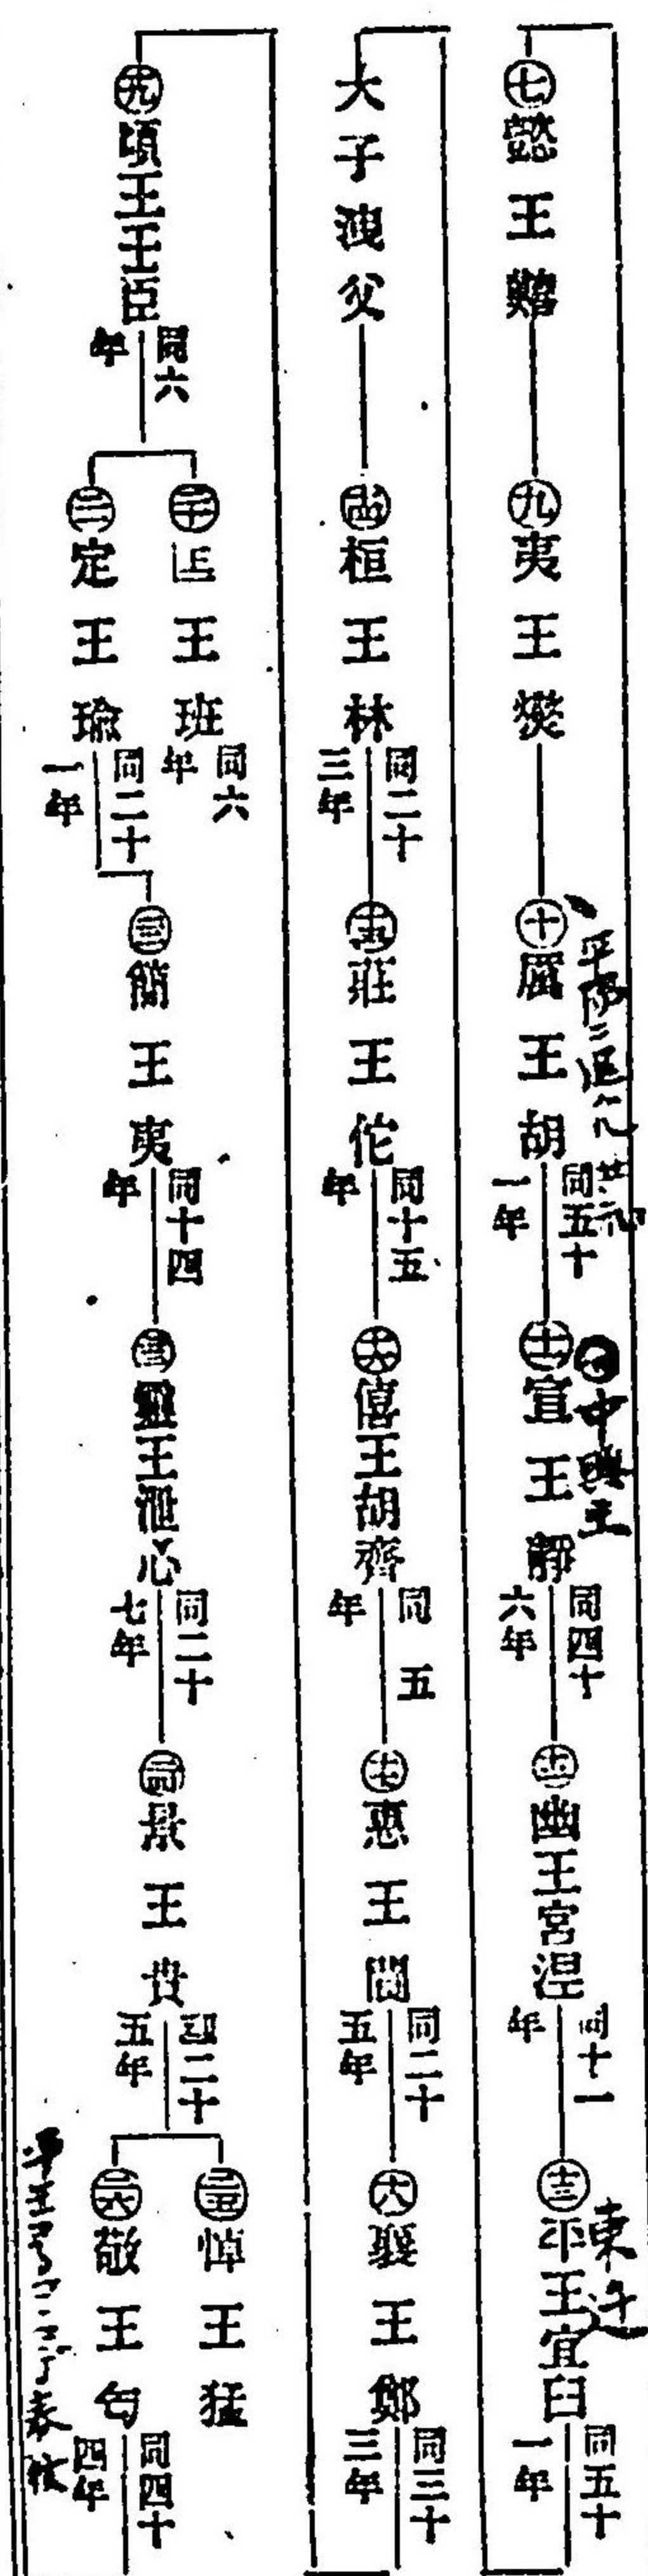 七 懿王囏
九 夷王燮
十 厲王胡
同五十一年
十一 宣王靜
中興主
同四十六年
十二 幽王宮湼
同十一年
十三 平王宜臼
東迁
同五十一年
大子洩父
十四 桓王林
同二十三年
十五 莊王佗
同十五年
十六 僖王胡齊
同五年
十七 惠王閬
同二十五年
十八 襄王鄭
同三十三年
十九 頃王王臣
同六年
二十 匡王班
同六年
二一 定王瑜
同二十一年
二二 簡王夷
同十四年
二三 靈王泄心
同二十七年
二四 景王貴
同二十五年
二五 悼王猛
二六 敬王匄
同四十四年